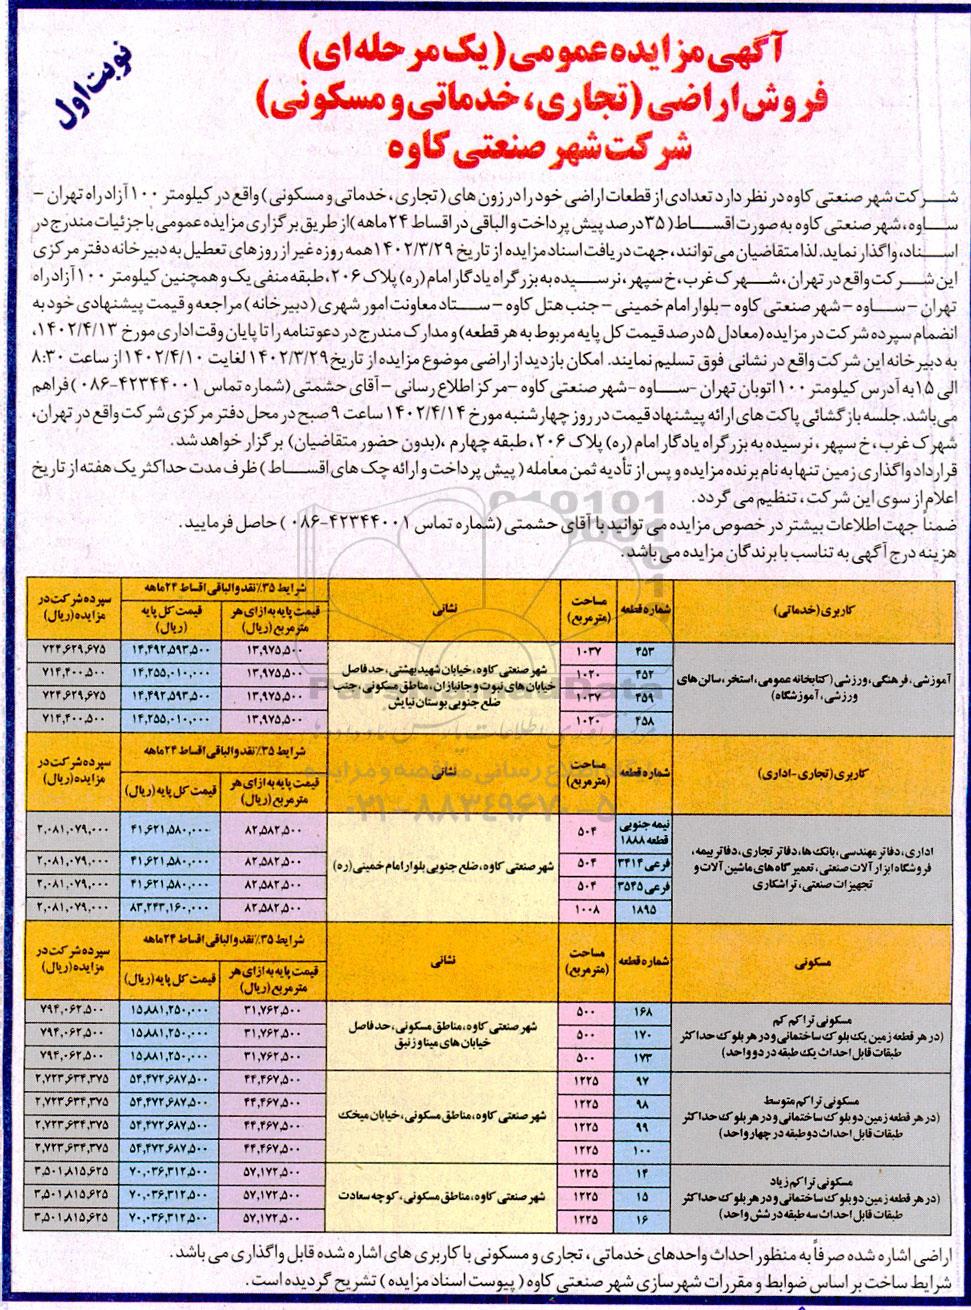 آگهی مزایده عمومی (یک مرحله‌ای)
فروش اراضی (تجاری، خدماتی و مسکونی)
شرکت شهر صنعتی کاوه
نوبت اول
شرکت شهر صنعتی کاوه در نظر دارد تعدادی از قطعات اراضی خود را در زون های (تجاری، خدماتی و مسکونی) واقع در کیلومتر ۱۰۰ آزاد راه تهران -
ساوه، شهر صنعتی کاوه به صورت اقساط (۳۵ درصد پیش پرداخت و الباقی در اقساط ۲۴ ماهه) از طریق برگزاری مزایده عمومی با جزئیات مندرج در
اسناد، واگذار نماید. لذا متقاضیان می توانند، جهت دریافت اسناد مزایده از تاریخ ۱۴۰۲/۳/۲۹ همه روزه غیر از روزهای تعطیل به دبیرخانه دفتر مرکزی
این شرکت واقع در تهران، شهرک غرب، خ سپهر، نرسیده به بزرگراه یادگار امام (ره) پلاک ۲۰۶، طبقه منفی یک و همچنین کیلومتر ۱۰۰ آزاد راه
تهران - ساوه - شهر صنعتی کاوه - بلوار امام خمینی - جنب هتل کاوه - ستاد معاونت امور شهری (دبیرخانه) مراجعه و قیمت پیشنهادی خود به
انضمام سپرده شرکت در مزایده (معادل ۵ درصد قیمت کل پایه مربوط به هر قطعه) و مدارک مندرج در دعوتنامه را تا پایان وقت اداری مورخ ۱۴۰۲/۴/۱۳،
به دبیرخانه این شرکت واقع در نشانی فوق تسلیم نمایند. امکان بازدید از اراضی موضوع مزایده از تاریخ ۱۴۰۲/۳/۲۹ لغایت ۱۴۰۲/۴/۱۰ از ساعت ۸:۳۰
الی ۱۵ به آدرس کیلومتر ۱۰۰ اتوبان تهران - ساوه - شهر صنعتی کاوه - مرکز اطلاع رسانی - آقای حشمتی (شماره تماس ۴۲۳۴۴۰۰۱-۰۸۶) فراهم
می باشد. جلسه بازگشائی پاکت های ارائه پیشنهاد قیمت در روز چهارشنبه مورخ ۱۴۰۲/۴/۱۴ ساعت ۹ صبح در محل دفتر مرکزی شرکت واقع در تهران،
شهرک غرب، خ سپهر، نرسیده به بزرگراه یادگار امام (ره) پلاک ۲۰۶، طبقه چهارم، (بدون حضور متقاضیان) برگزار خواهد شد.
قرارداد واگذاری زمین تنها به نام برنده مزایده و پس از تأدیه ثمن معامله (پیش پرداخت و ارائه چک های اقساط) ظرف مدت حداکثر یک هفته از تاریخ
اعلام از سوی این شرکت، تنظیم می گردد.
ضمناً جهت اطلاعات بیشتر در خصوص مزایده می توانید با آقای حشمتی (شماره تماس ۴۲۳۴۴۰۰۱-۰۸۶) حاصل فرمایید.
هزینه درج آگهی به تناسب با برندگان مزایده می باشد.
کاربری (خدماتی) شماره قطعه مساحت (مترمربع) نشانی شرایط ۳۵٪ نقد و الباقی اقساط ۲۴ ماهه سپرده شرکت در مزایده (ریال)
قیمت پایه به ازای هر مترمربع (ریال) قیمت کل پایه (ریال)
آموزشی، فرهنگی، ورزشی (کتابخانه عمومی، استخر، سالن های
ورزشی، آموزشگاه)
شهر صنعتی کاوه، خیابان شهید بهشتی، حد فاصل
خیابان های نبوت و جانبازان، مناطق مسکونی، جنب
ضلع جنوبی بوستان نیایش
۴۵۳ ۱۰۳۷ ۱۳,۹۷۵,۵۰۰ ۱۴,۴۹۲,۵۹۳,۵۰۰ ۷۲۴,۶۲۹,۶۷۵
۴۵۲ ۱۰۲۰ ۱۳,۹۷۵,۵۰۰ ۱۴,۲۵۵,۰۱۰,۰۰۰ ۷۱۴,۴۰۰,۵۰۰
۴۵۹ ۱۰۳۷ ۱۳,۹۷۵,۵۰۰ ۱۴,۴۹۲,۵۹۳,۵۰۰ ۷۲۴,۶۲۹,۶۷۵
۴۵۸ ۱۰۲۰ ۱۳,۹۷۵,۵۰۰ ۱۴,۲۵۵,۰۱۰,۰۰۰ ۷۱۴,۴۰۰,۵۰۰
کاربری (تجاری-اداری) شماره قطعه مساحت (مترمربع) نشانی شرایط ۳۵٪ نقد و الباقی اقساط ۲۴ ماهه سپرده شرکت در مزایده (ریال)
قیمت پایه به ازای هر مترمربع (ریال) قیمت کل پایه (ریال)
اداری، دفاتر مهندسی، بانک ها، دفاتر تجاری، دفاتر بیمه،
فروشگاه ابزار آلات صنعتی، تعمیرگاه های ماشین آلات و
تجهیزات صنعتی، تراشکاری
شهر صنعتی کاوه، ضلع جنوبی بلوار امام خمینی (ره)
نیمه جنوبی قطعه ۱۸۸۸ ۵۰۴ ۸۲,۵۸۲,۵۰۰ ۴۱,۶۲۱,۵۸۰,۰۰۰ ۲,۰۸۱,۰۷۹,۰۰۰
فرعی ۳۴۱۴ ۵۰۴ ۸۲,۵۸۲,۵۰۰ ۴۱,۶۲۱,۵۸۰,۰۰۰ ۲,۰۸۱,۰۷۹,۰۰۰
فرعی ۳۵۴۵ ۵۰۴ ۸۲,۵۸۲,۵۰۰ ۴۱,۶۲۱,۵۸۰,۰۰۰ ۲,۰۸۱,۰۷۹,۰۰۰
۱۸۹۵ ۱۰۰۸ ۸۲,۵۸۲,۵۰۰ ۸۳,۲۴۳,۱۶۰,۰۰۰ ۲,۰۸۱,۰۷۹,۰۰۰
مسکونی شماره قطعه مساحت (مترمربع) نشانی شرایط ۳۵٪ نقد و الباقی اقساط ۲۴ ماهه سپرده شرکت در مزایده (ریال)
قیمت پایه به ازای هر مترمربع (ریال) قیمت کل پایه (ریال)
مسکونی تراکم کم
(در هر قطعه زمین یک بلوک ساختمانی و در هر بلوک حداکثر
طبقات قابل احداث یک طبقه در دو واحد)
شهر صنعتی کاوه، مناطق مسکونی، حد فاصل
خیابان های مینا و زنبق
۱۶۸ ۵۰۰ ۳۱,۷۶۲,۵۰۰ ۱۵,۸۸۱,۲۵۰,۰۰۰ ۷۹۴,۰۶۲,۵۰۰
۱۷۰ ۵۰۰ ۳۱,۷۶۲,۵۰۰ ۱۵,۸۸۱,۲۵۰,۰۰۰ ۷۹۴,۰۶۲,۵۰۰
۱۷۳ ۵۰۰ ۳۱,۷۶۲,۵۰۰ ۱۵,۸۸۱,۲۵۰,۰۰۰ ۷۹۴,۰۶۲,۵۰۰
مسکونی تراکم متوسط
(در هر قطعه زمین دو بلوک ساختمانی و در هر بلوک حداکثر
طبقات قابل احداث دو طبقه در چهار واحد)
شهر صنعتی کاوه، مناطق مسکونی، خیابان میخک
۹۷ ۱۲۲۵ ۴۴,۴۶۷,۵۰۰ ۵۴,۴۷۲,۶۸۷,۵۰۰ ۲,۷۲۳,۶۳۴,۳۷۵
۹۸ ۱۲۲۵ ۴۴,۴۶۷,۵۰۰ ۵۴,۴۷۲,۶۸۷,۵۰۰ ۲,۷۲۳,۶۳۴,۳۷۵
۹۹ ۱۲۲۵ ۴۴,۴۶۷,۵۰۰ ۵۴,۴۷۲,۶۸۷,۵۰۰ ۲,۷۲۳,۶۳۴,۳۷۵
۱۰۰ ۱۲۲۵ ۴۴,۴۶۷,۵۰۰ ۵۴,۴۷۲,۶۸۷,۵۰۰ ۲,۷۲۳,۶۳۴,۳۷۵
مسکونی تراکم زیاد
(در هر قطعه زمین دو بلوک ساختمانی و در هر بلوک حداکثر
طبقات قابل احداث سه طبقه در شش واحد)
شهر صنعتی کاوه، مناطق مسکونی، کوچه سعادت
۱۴ ۱۲۲۵ ۵۷,۱۷۲,۵۰۰ ۷۰,۰۳۶,۳۱۲,۵۰۰ ۳,۵۰۱,۸۱۵,۶۲۵
۱۵ ۱۲۲۵ ۵۷,۱۷۲,۵۰۰ ۷۰,۰۳۶,۳۱۲,۵۰۰ ۳,۵۰۱,۸۱۵,۶۲۵
۱۶ ۱۲۲۵ ۵۷,۱۷۲,۵۰۰ ۷۰,۰۳۶,۳۱۲,۵۰۰ ۳,۵۰۱,۸۱۵,۶۲۵
اراضی اشاره شده صرفاً به منظور احداث واحدهای خدماتی، تجاری و مسکونی با کاربری های اشاره شده قابل واگذاری می باشد.
شرایط ساخت بر اساس ضوابط و مقررات شهرسازی شهر صنعتی کاوه (پیوست اسناد مزایده) تشریح گردیده است.
۰۲۱-۸۸۳۴۹۶۷۰-۵